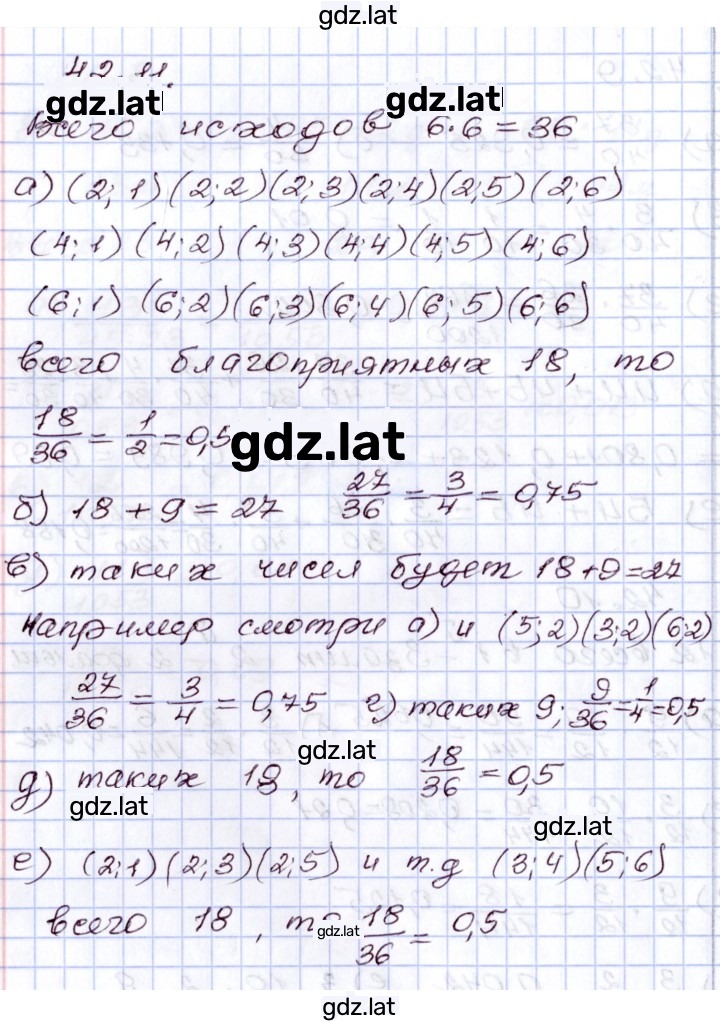 gdz.lat
42.11.
gdz.lat gdz.lat
Всего исходов 6·6=36
а) (2;1)(2;2)(2;3)(2;4)(2;5)(2;6)
(4;1)(4;2)(4;3)(4;4)(4;5)(4;6)
(6;1)(6;2)(6;3)(6;4)(6;5)(6;6)
всего благоприятных 18, то
18/36 = 1/2 = 0,5
gdz.lat
б) 18+9=27 27/36 = 3/4 = 0,75
в) таких чисел будет 18+9=27
например смотри а) и (5;2)(3;2)(6;2)
27/36 = 3/4 = 0,75 г) таких 9; 9/36=1/4=0,5
gdz.lat
д) таких 18, то 18/36 = 0,5
gdz.lat
gdz.lat
е) (2;1)(2;3)(2;5) и т.д (3;4)(5;6)
всего 18, то 18/36 = 0,5
gdz.lat
gdz.lat